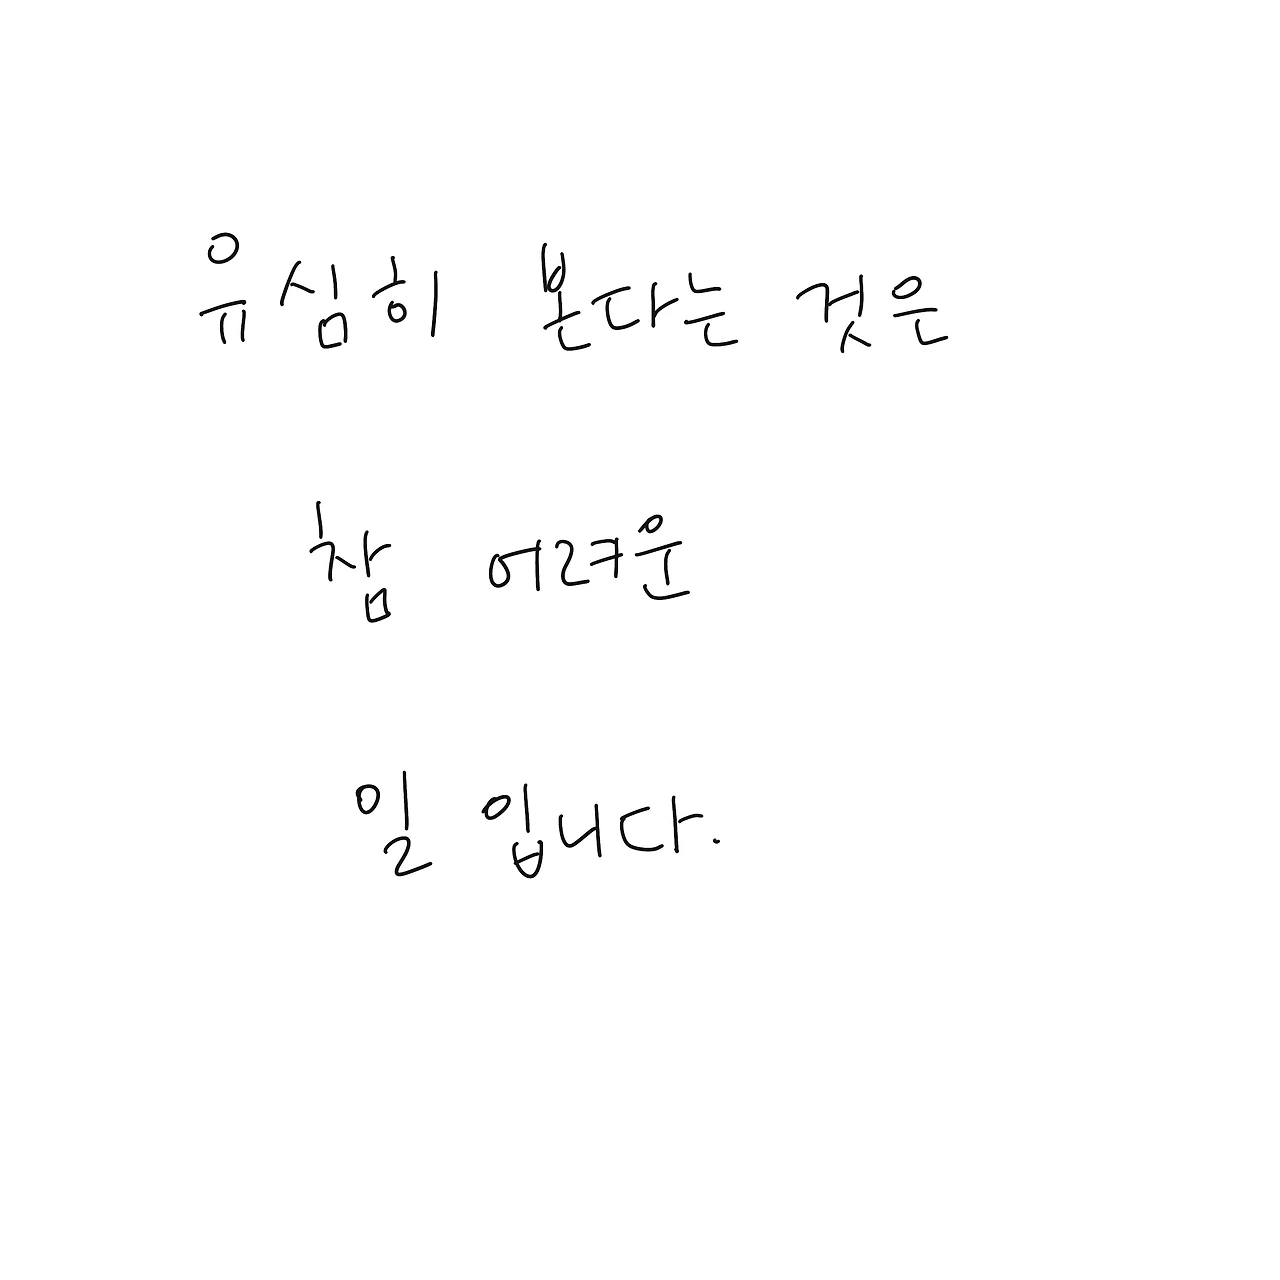 유심히 본다는 것은
참 어려운
일 입니다.